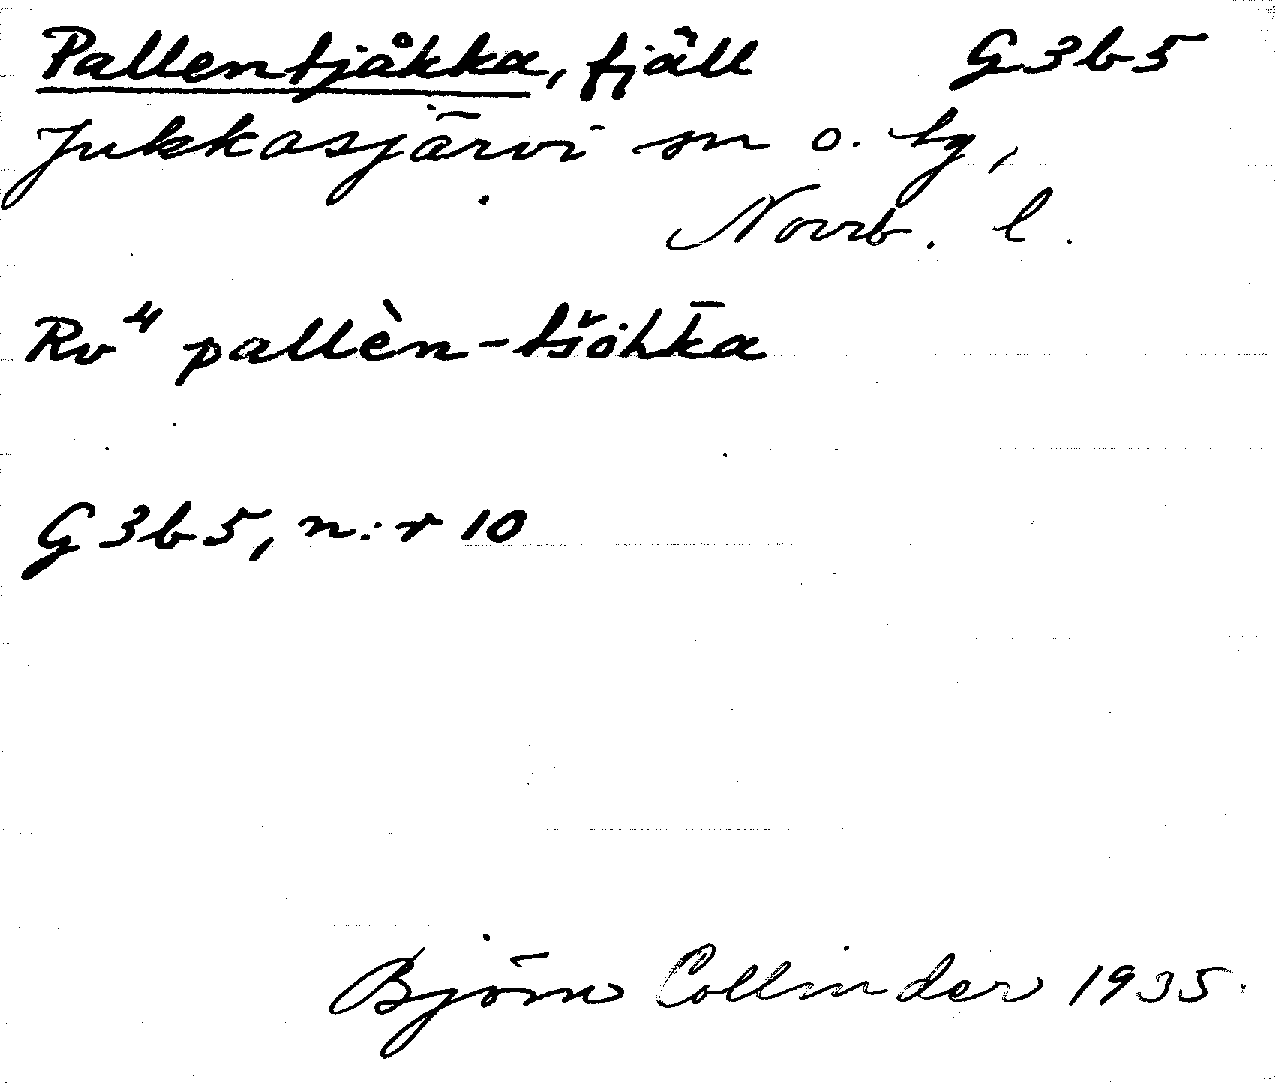 Pallentjåkka, fjäll G3b5
Jukkasjärvi sn o. tg,
Norrb. l.
Rv⁴ pallèn-tšoh̄ka
G3b5, n:r 10
Björn Collinder 1935.